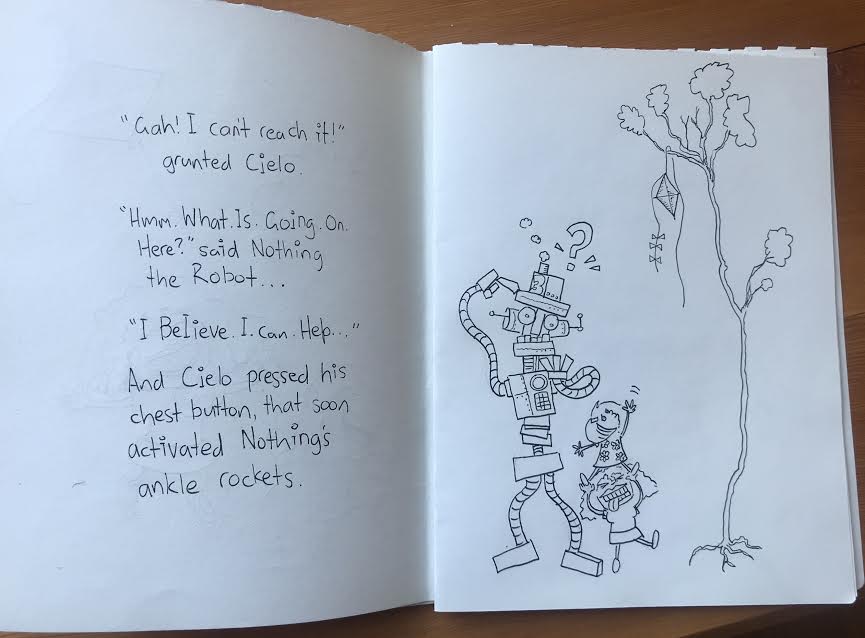 "Gah! I can't reach it!"
grunted Cielo.
"Hmm. What. Is. Going. On.
Here?" said Nothing
the Robot...
"I Believe. I. Can. Help..."
And Cielo pressed his
chest button, that soon
activated Nothing's
ankle rockets.
?
3